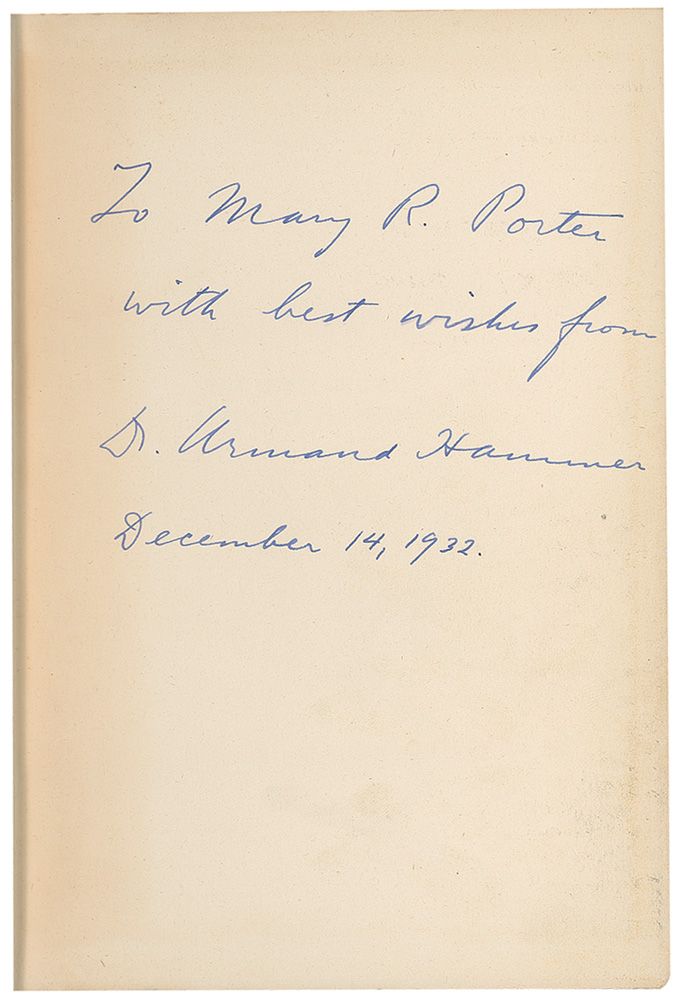 To Mary R. Porter
with best wishes from
Dr. Armand Hammer
December 14, 1932.